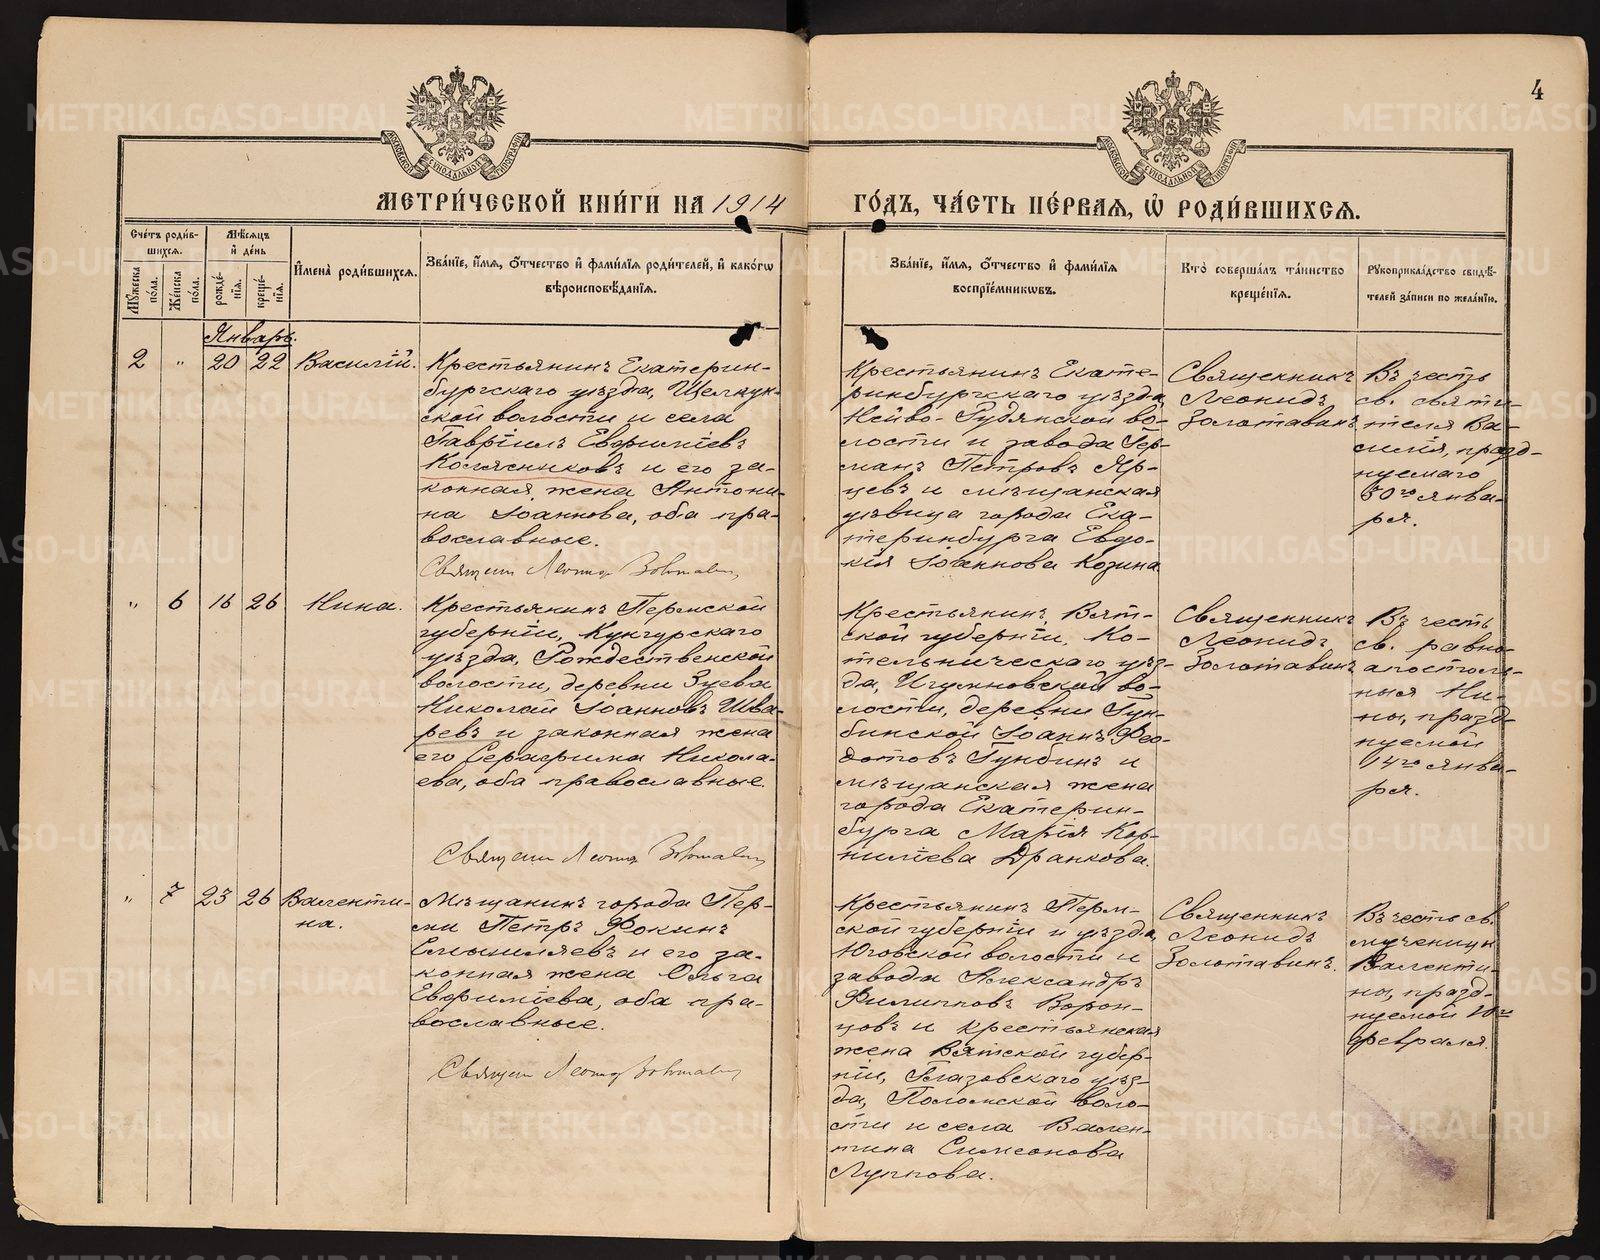 4
МЕТРИ́ЧЕСКОЙ КНИ́ГИ НА 1914 ГО́ДЪ, ЧА́СТЬ ПЕ́РВАЯ, Ѡ҆ РОДИ́ВШИХСЯ.
Сче́тъ роди́в-
шихся.
Мꙋ́жеска по́ла.
Же́нска по́ла.
Мѣ́сяцъ
и҆ де́нь
рожде́-
нїѧ.
креще́-
нїѧ.
И҆мена̀ роди́вшихся.
Зва́нїе, и҆́мѧ, ѻ҆́тчество и҆ фами́лїѧ роди́телей, и҆ како́гѡ
вѣроисповѣ́данїѧ.
Зва́нїе, и҆́мѧ, ѻ҆́тчество и҆ фами́лїѧ
воспрїе́мникѡвъ.
Кто̀ соверша́лъ та́инство
креще́нїѧ.
Рꙋкоприкла́дство свидѣ́-
телей за́писи по жела́нїю.
Январь.
2
"
20
22
Василій.
Крестьянинъ Екатерин-
бургскаго уѣзда, Щелкун-
ской волости и села
Гавріилъ Евѳиміевъ
Колясниковъ и его за-
конная жена Антони-
на Іоаннова, оба пра-
вославные.
Крестьянинъ Екате-
ринбургскаго уѣзда
Нейво-Рудянской во-
лости и завода Гер-
манъ Петровъ Яр-
цевъ и мѣщанская
дѣвица города Ека-
теринбурга Евдо-
кія Іоаннова Козина
Священникъ
Леонидъ
Золотавинъ
Въ честь
св. святи-
теля Ва-
силія, празд-
нуемаго
30го янва-
ря.
"
6
16
26
Нина.
Крестьянинъ Пермской
губерніи, Кунгурскаго
уѣзда, Рождественской
волости, деревни Зуева
Николай Іоанновъ Шва-
ревъ и законная жена
его Серафима Никола-
ева, оба православные.
Крестьянинъ Вят-
ской губерніи, Ко-
тельническаго уѣз-
да, Игумновской во-
лости, деревни Гун-
бинской Іоаннъ Ѳео-
дотовъ Гунбинъ и
мѣщанская жена
города Екатерин-
бурга Марія Кор-
ниліева Дранкова.
Священникъ
Леонидъ
Золотавинъ
Въ честь
св. равно-
апостоль-
ныя Ни-
ны, празд-
нуемой
14го янва-
ря.
"
7
23
26
Валенти-
на.
Мѣщанинъ города Пер-
ми Петръ Фокинъ
Смышляевъ и его за-
конная жена Ольга
Евѳиміева, оба пра-
вославные.
Крестьянинъ Перм-
ской губерніи и уѣзда,
Юговской волости и
завода Александръ
Филипповъ Ворон-
цовъ и крестьянская
жена Вятской губер-
ніи, Глазовскаго уѣз-
да, Поломской воло-
сти и села Вален-
тина Симеонова
Луппова.
Священникъ
Леонидъ
Золотавинъ.
Въ честь св.
мученицы
Валенти-
ны, празд-
нуемой 10го
февраля.